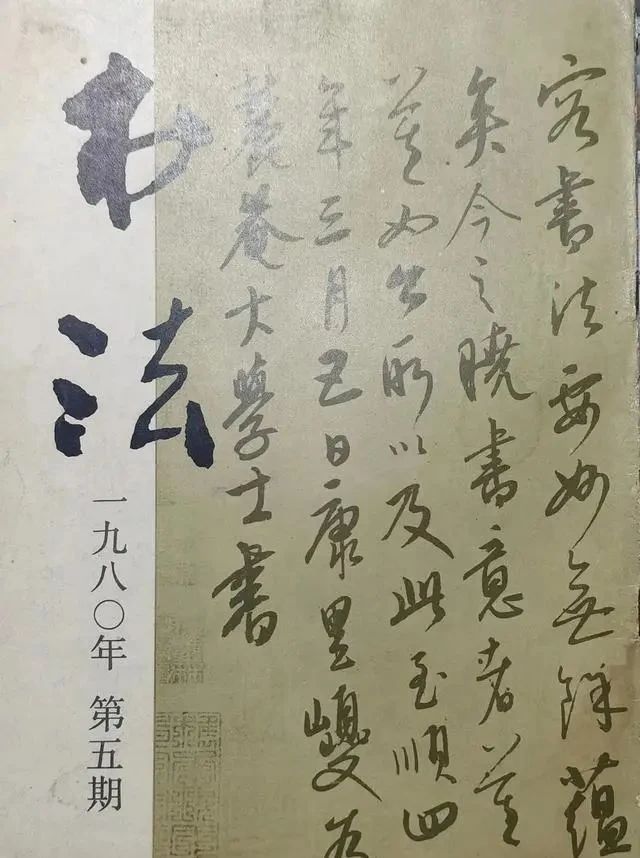 书法
一九八〇年 第五期
容書法要妙無餘蘊
矣今之曉書意者
莫如公所以及此至順四
年三月五日康里巎為
麓菴大學士書